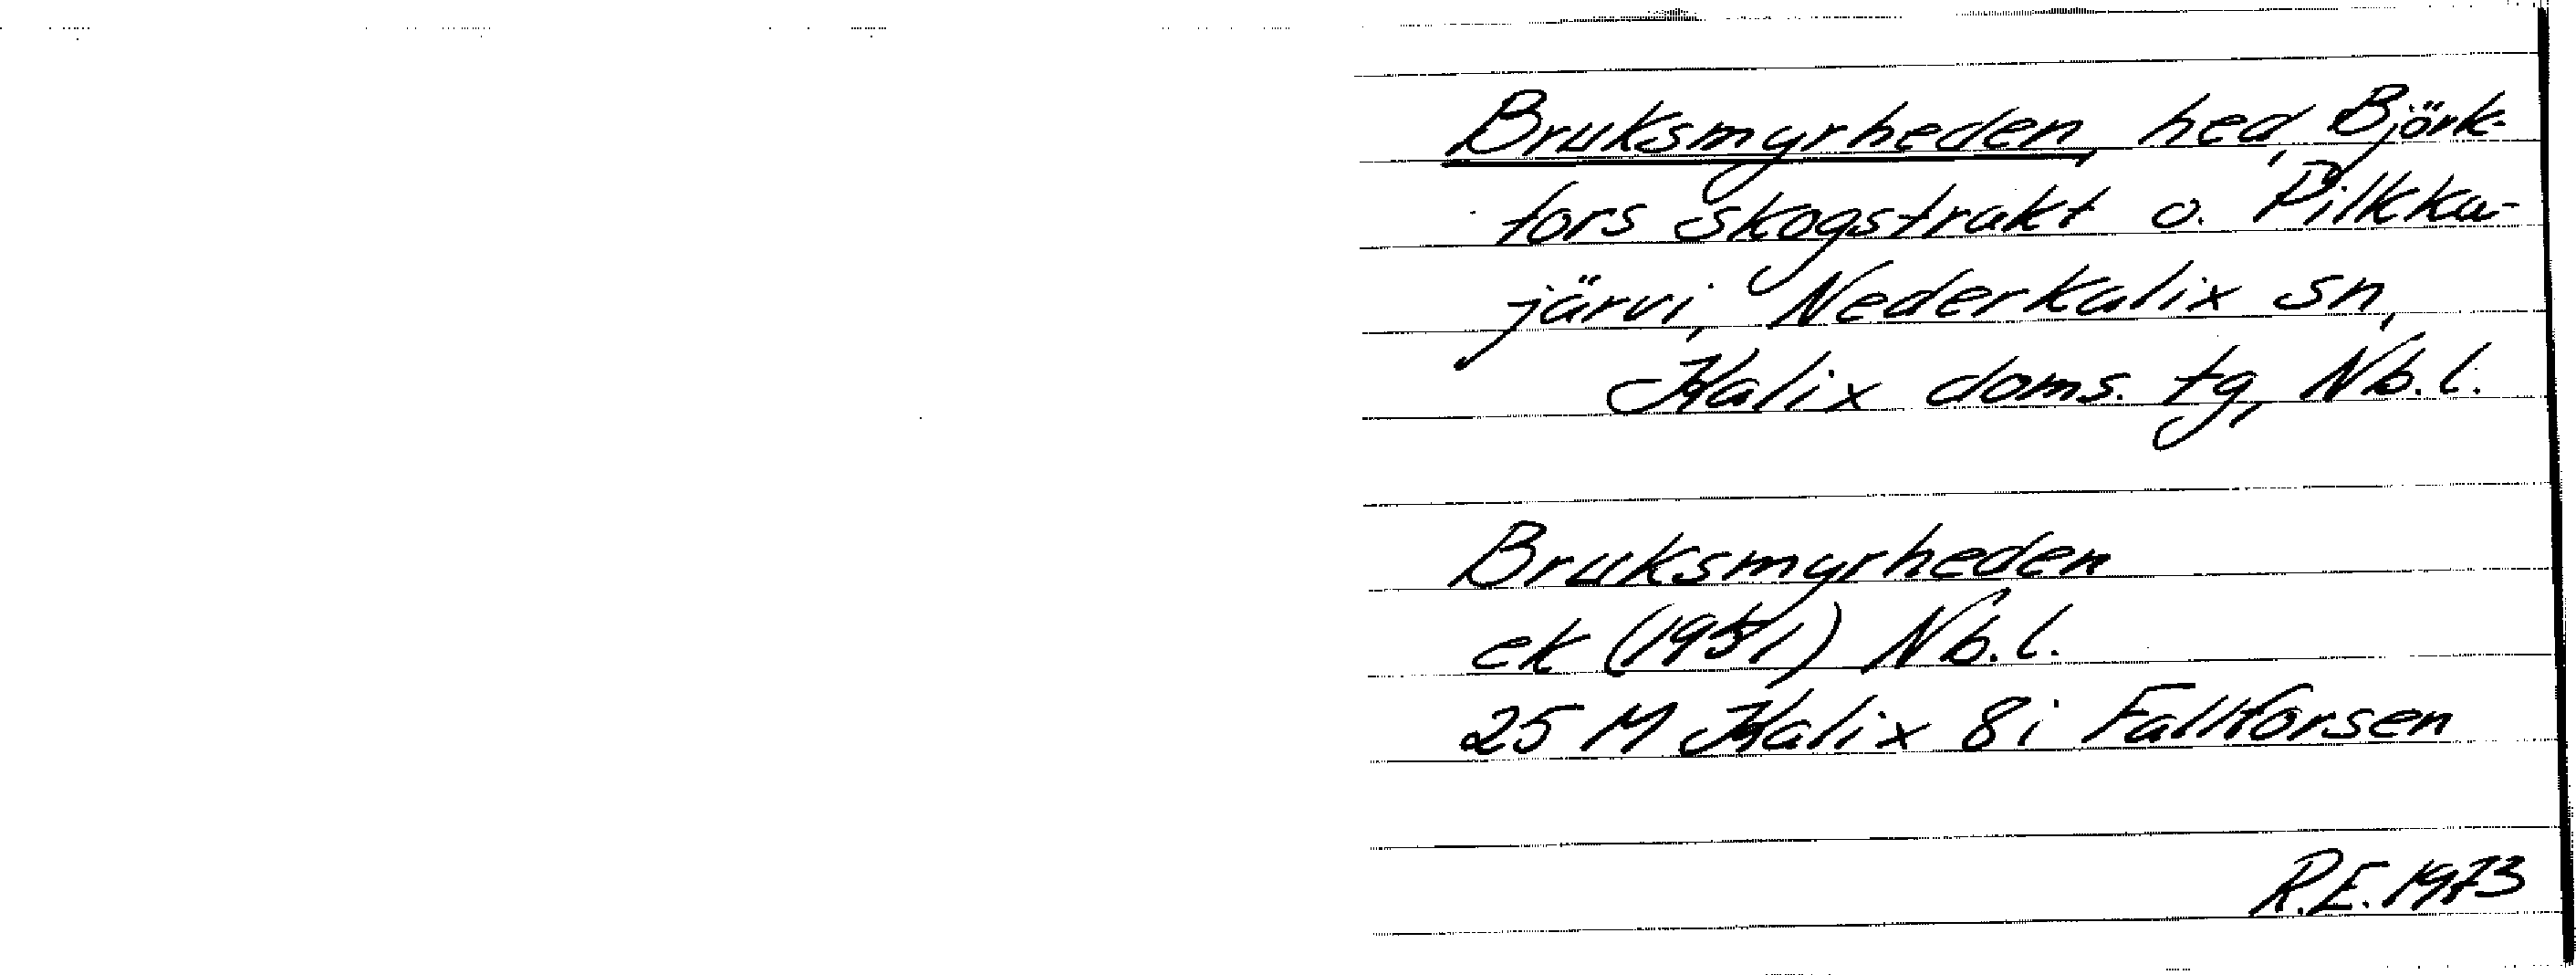 Bruksmyrheden, hed, Björk-
fors skogstrakt o. Pilkka-
järvi, Nederkalix sn,
Kalix doms. tg, Nb.l.
Bruksmyrheden
ek (1951) Nb.l.
25 M Kalix 8i Fallforsen
R.E. 1973